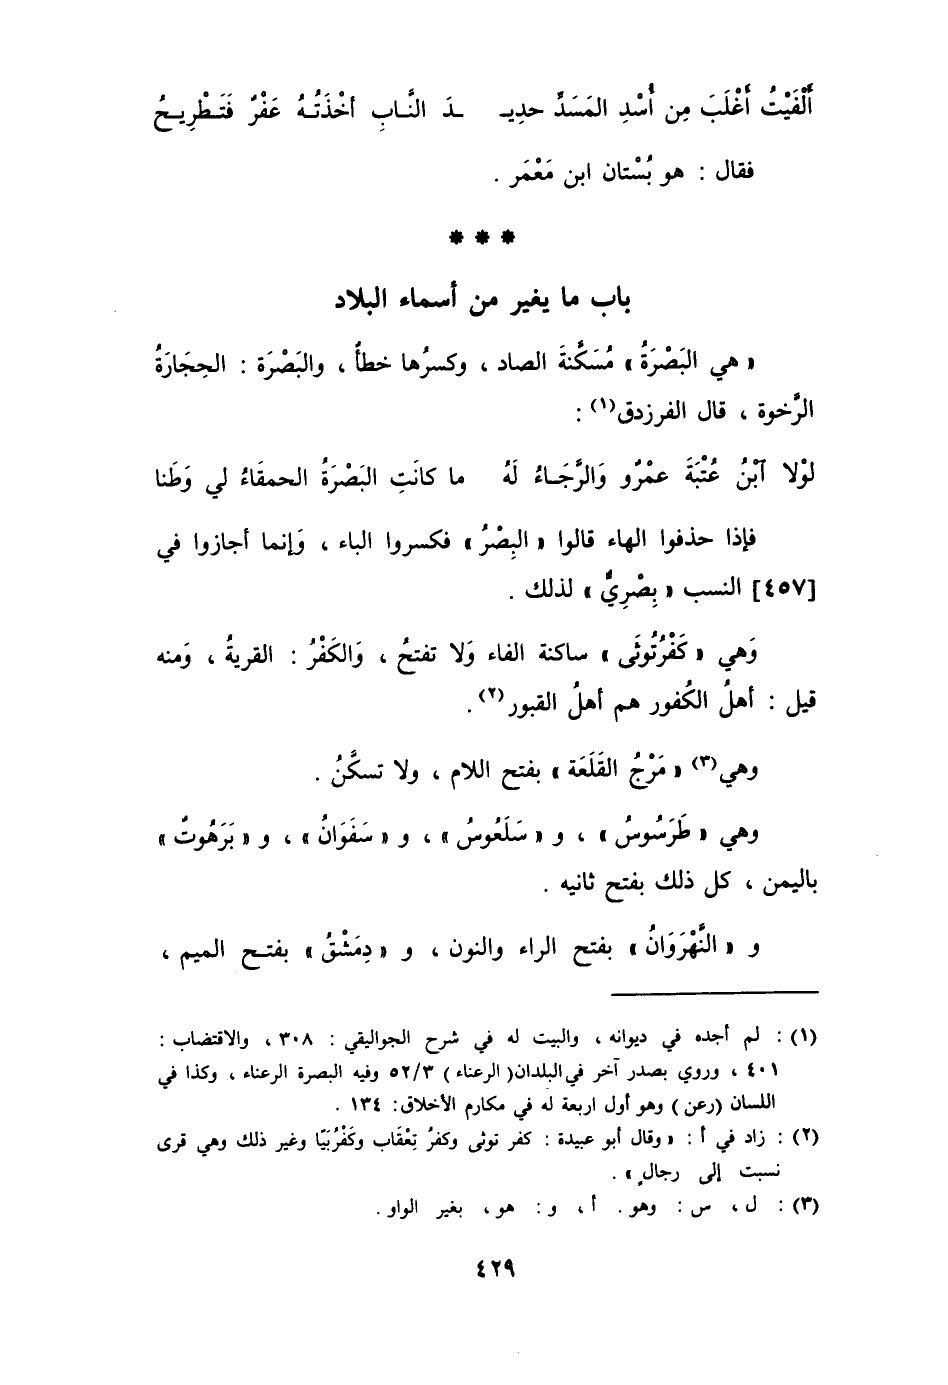 أَلْفَيْتُ أَغْلَبَ مِن أُسْدِ المَسَدِّ حدِيـ ـدَ النَّابِ أخْذَتُهُ عَفْرٌ فَتَطْرِيحُ
فقال : هو بُسْتان ابن مَعْمَر .
* * *
باب ما يغير من أسماء البلاد
« هي البَصْرَةُ » مُسَكَّنةَ الصاد ، وكسرُها خطأٌ ، والبَصْرَة : الحِجَارَةُ
الرَّخوة ، قال الفرزدق(١) :
لوْلا آبْنُ عُتْبَةَ عمْرٌو وَالرَّجَاءُ لَهُ ما كانَتِ البَصْرَةُ الحمقَاءُ لي وَطَنا
فإذا حذفوا الهاء قالوا « البِصْرُ » فكسروا الباء ، وَإنما أجازوا في
[٤٥٧] النسب « بِصْرِيٌّ » لذلك .
وَهي « كَفْرُتُوثَى » ساكنة الفاء وَلا تفتحُ ، وَالكَفْرُ : القريةُ ، وَمنه
قيل : أهلُ الكُفور هم أهلُ القبور(٢) .
وهي(٣) « مَرْجُ القَلَعَة » بفتح اللام ، ولا تسكَّنُ .
وهي « طَرَسُوسُ » ، و « سَلَعُوسُ » ، و « سَفَوَانُ » ، و « بَرَهُوتُ »
باليمن ، كل ذلك بفتح ثانيه .
و « النَّهْرَوَانُ » بفتح الراء والنون ، و « دِمَشْقُ » بفتح الميم ،
(١) : لم أجده في ديوانه ، والبيت له في شرح الجواليقي : ٣٠٨ ، والاقتضاب :
٤٠١ ، وروي بصدر آخر في البلدان ( الرعناء ) ٥٢/٣ وفيه البصرة الرعناء ، وكذا في
اللسان ( رعن ) وهو أول اربعة له في مكارم الأخلاق : ١٣٤ .
(٢) : زاد في أ : « وقال أبو عبيدة : كفر توثى وكفرُ تِعْقَاب وكَفْرُبَيَّا وغير ذلك وهي قرى
نسبت إلى رجالٍ » .
(٣) : ل ، س : وهو . أ ، و : هو ، بغير الواو .
٤٢٩